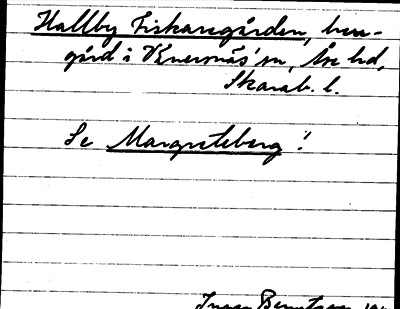 Hallby Fiskaregården, herr-
gård i Kvernäs' sn, Åse hd,
Skarab. l.
Se Margreteberg!
Bengtsson